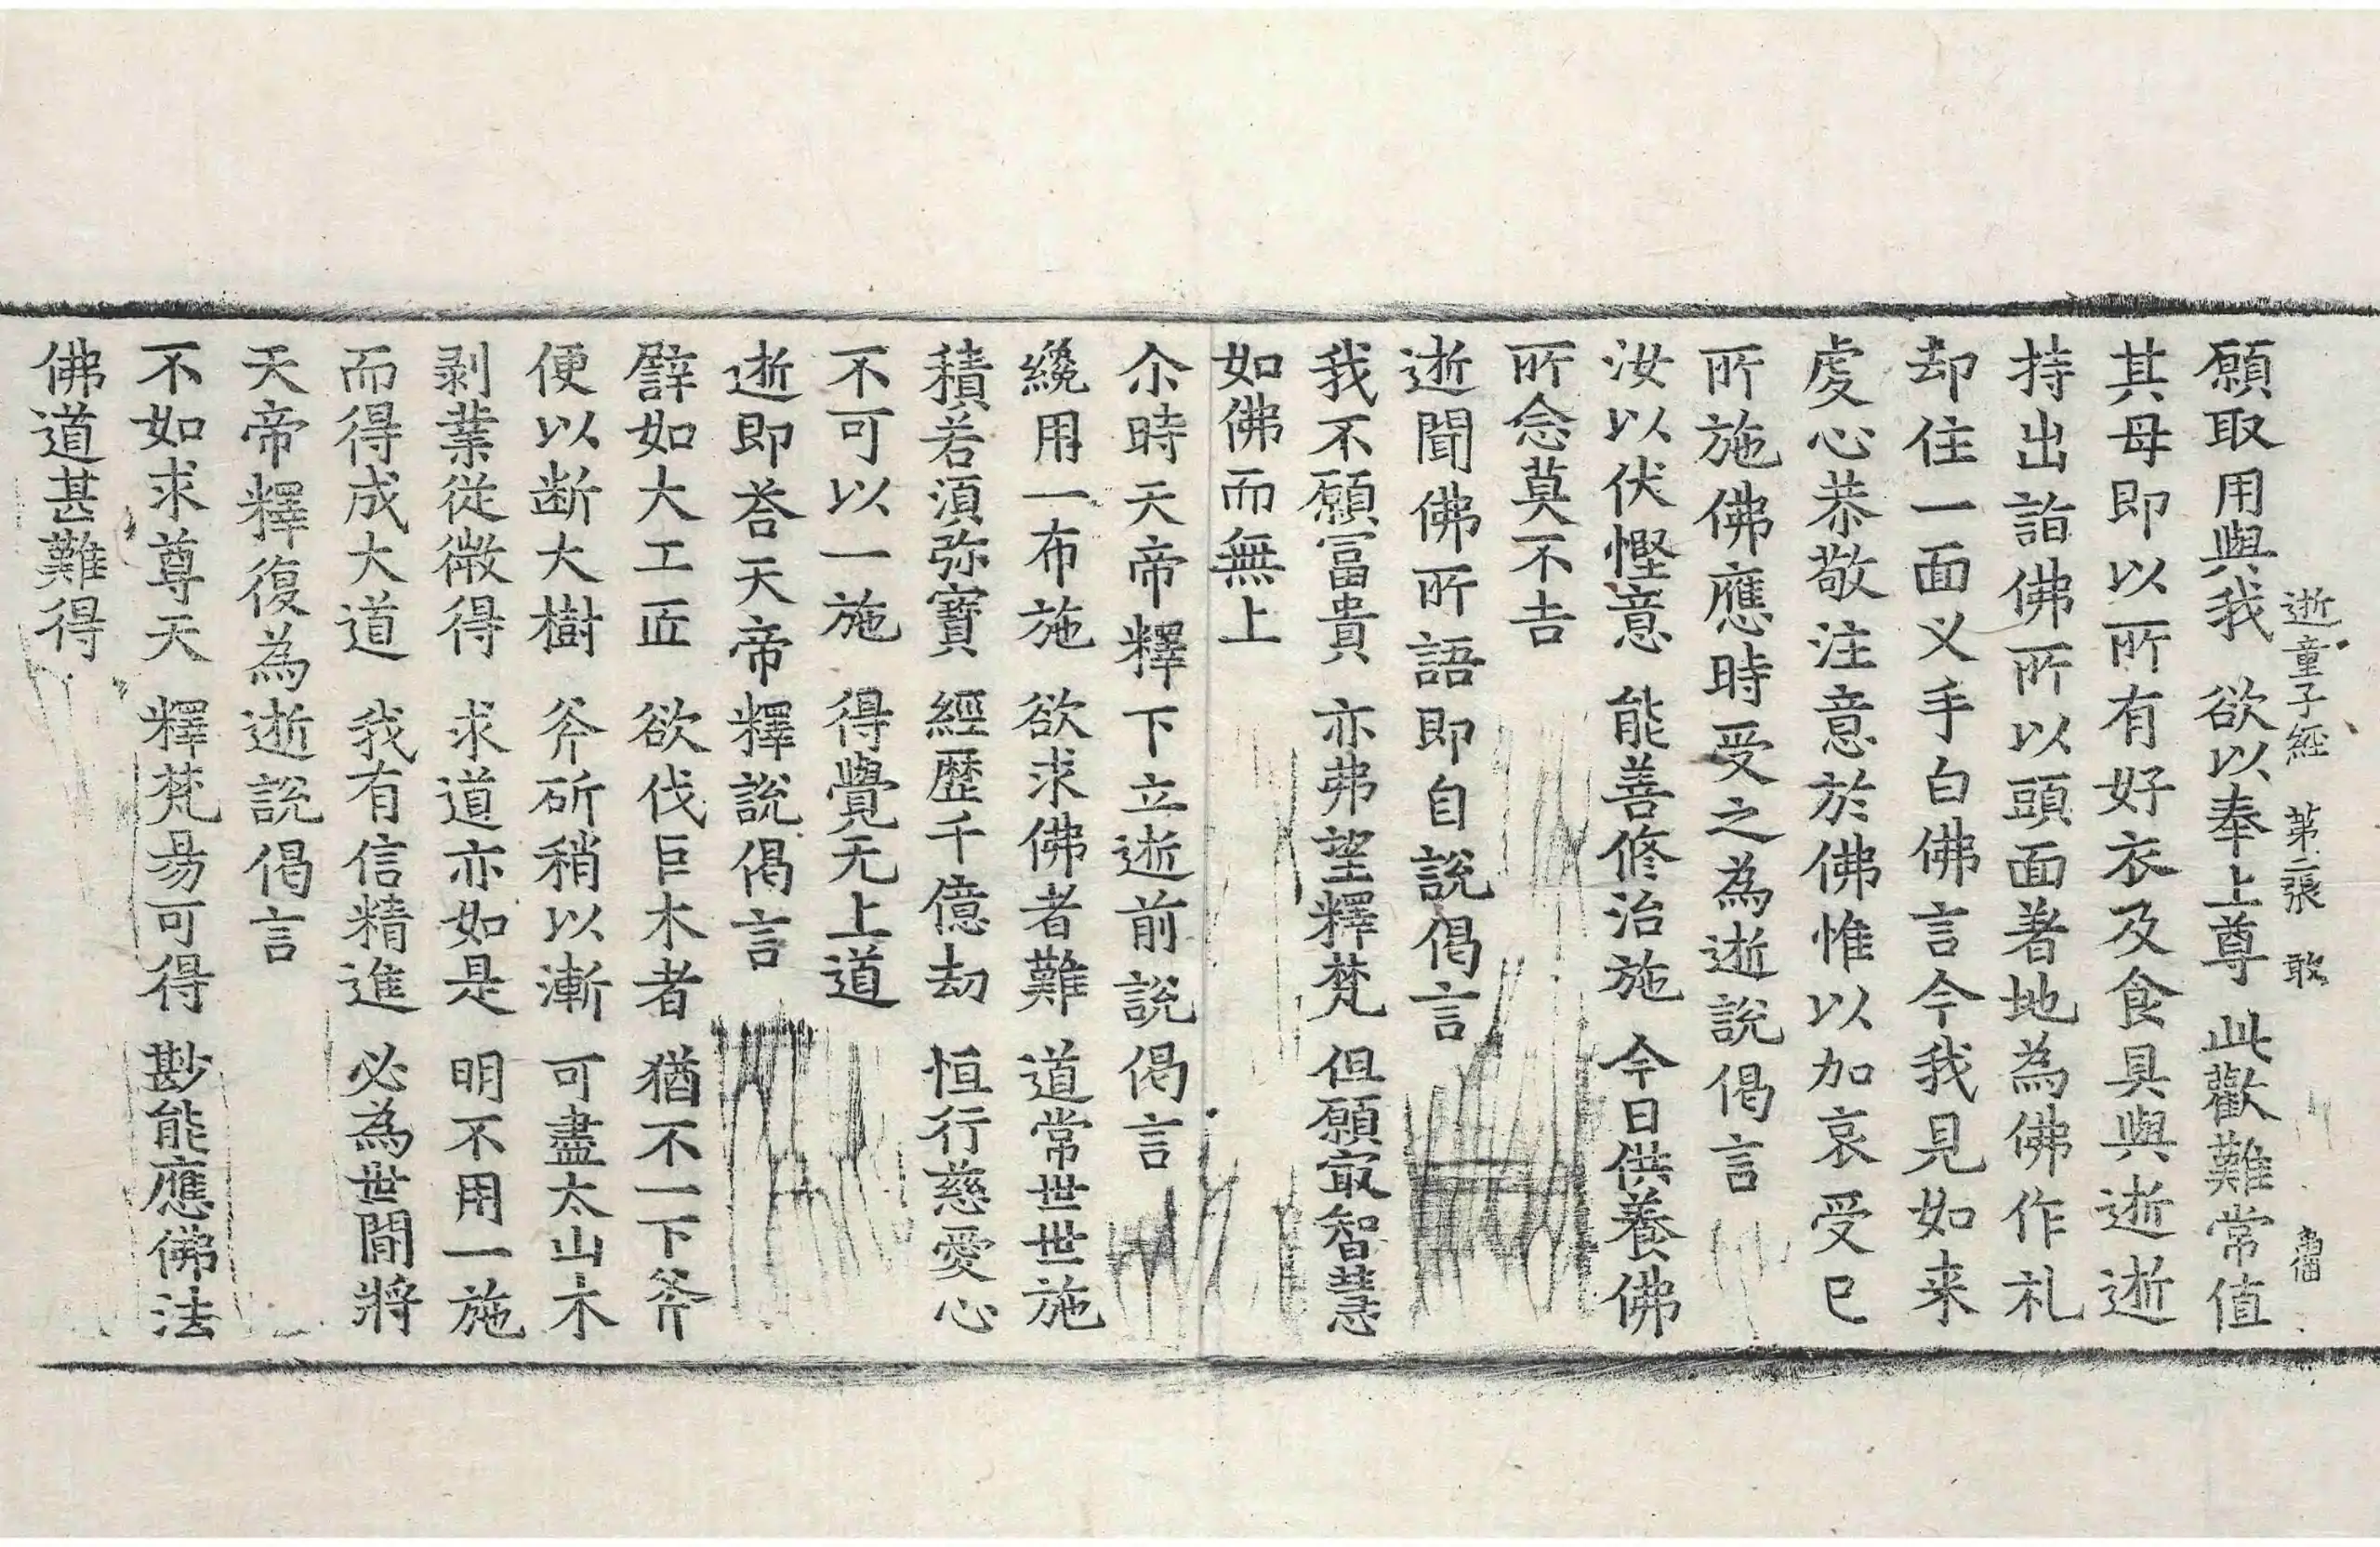 逝童子經 第二張 敢
願取用與我 欲以奉上尊 此歡難常值
其母即以所有好衣及食具與逝逝
持出詣佛所以頭面著地為佛作礼
却住一面义手白佛言今我見如来
虔心恭敬注意於佛惟以加哀受已
所施佛應時受之為逝說偈言
汝以伏慳意 能善修治施 今日供養佛
所念莫不吉
逝聞佛所語即自說偈言
我不願冨貴 亦弗望釋梵 但願㝡智慧
如佛而無上
尒時天帝釋下立逝前說偈言
纔用一布施 欲求佛者難 道常世世施
積若湏弥寶 經歷千億劫 恒行慈愛心
不可以一施 得覺无上道
逝即荅天帝釋說偈言
譬如大工匠 欲伐巨木者 猶不一下斧
便以断大樹 斧斫稍以漸 可盡太山木
剥業從微得 求道亦如是 明不用一施
而得成大道 我有信精進 必為世閒將
天帝釋復為逝說偈言
不如求尊天 釋梵昜可得 尠能應佛法
佛道甚難得